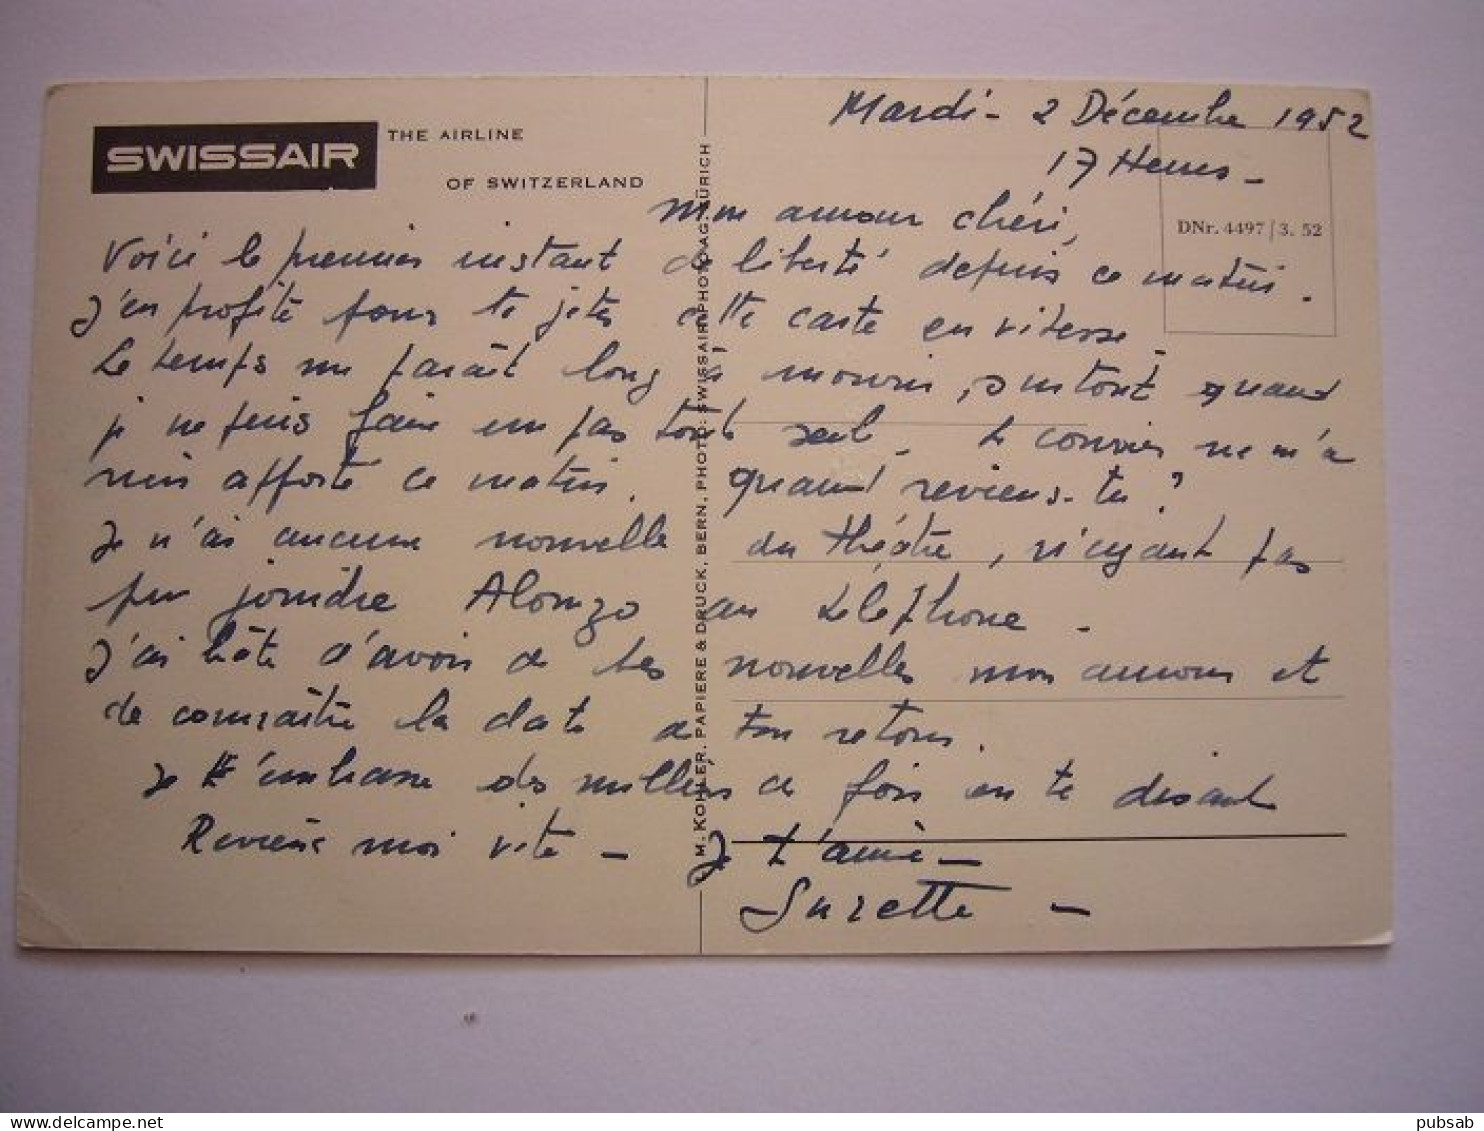 SWISSAIR THE AIRLINE
OF SWITZERLAND
Mardi - 2 Décembre 1952
17 Heures -
DNr. 4497/3. 52
Mon amour chéri,
Voici le premier instant de liberté depuis ce matin.
J'en profite pour te jeter cette carte en vitesse.
Le temps me paraît long à mourir, surtout quand
je ne puis faire un pas toute seule. Le courrier ne m'a
rien apporté ce matin. quand reviens-tu ?
Je n'ai aucune nouvelle du théâtre, n'ayant pas
pu joindre Alonzo au téléphone -
J'ai hâte d'avoir de tes nouvelles mon amour et
de connaître la date de ton retour.
Je t'embrasse des milliers de fois en te disant
Reviens moi vite - Je t'aime -
Suzette -
M. KOHLER, PAPIERE & DRUCK, BERN, PHOTO: SWISSAIR-PHOTO AG. ZÜRICH
pubsab delcampe.net